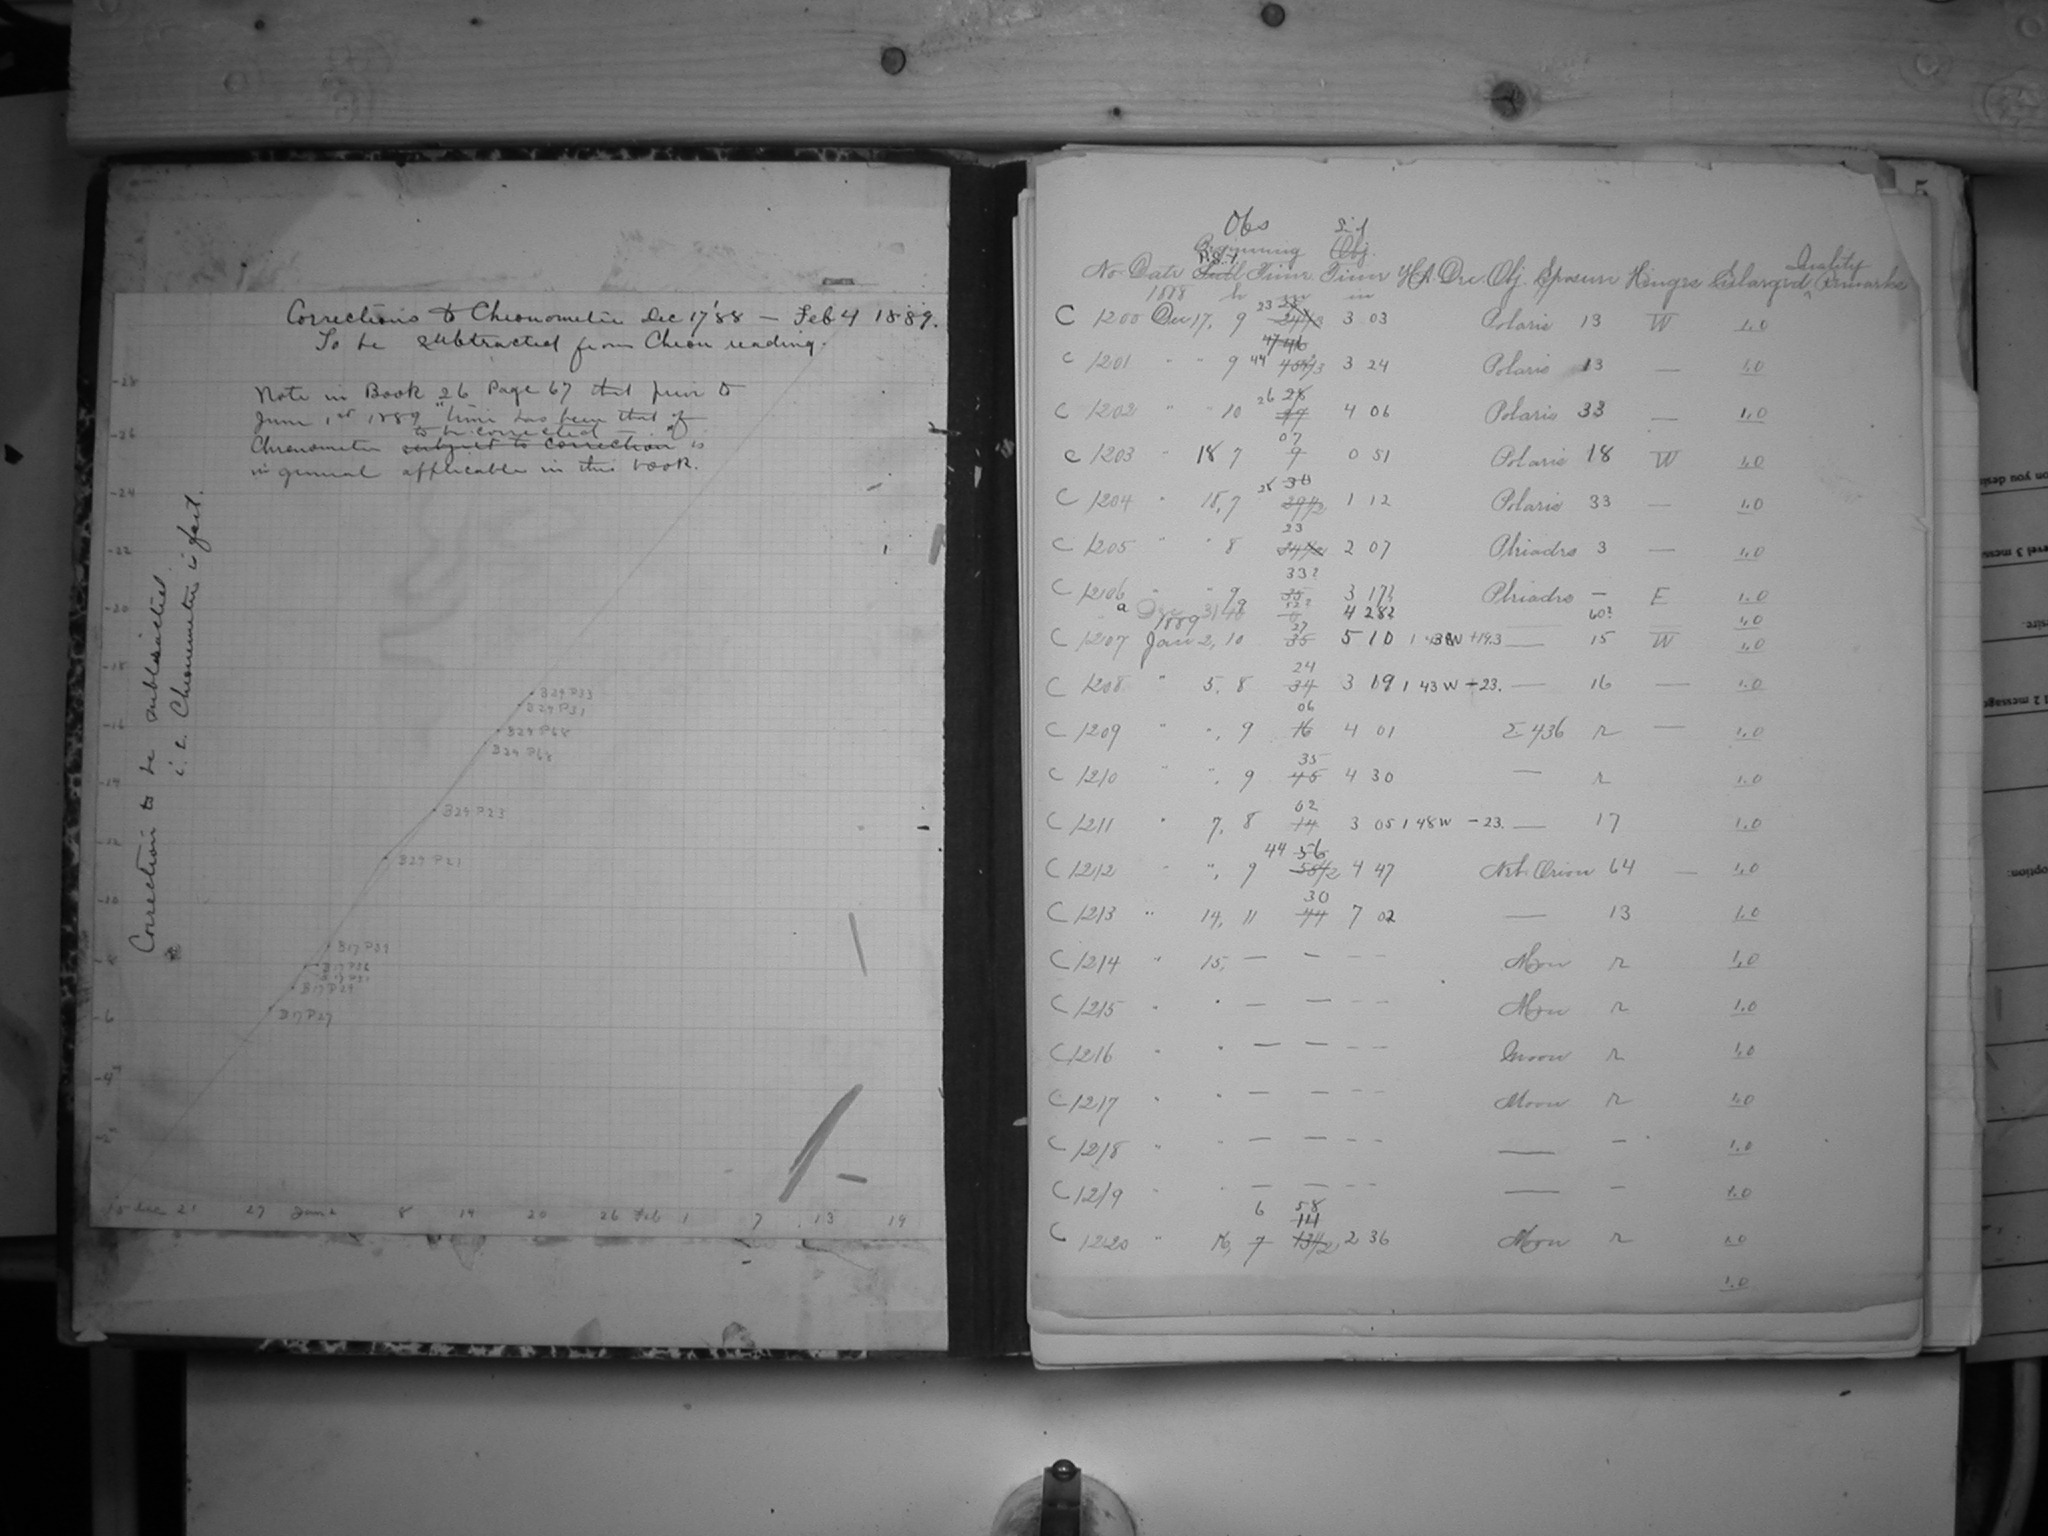 Corrections to Chronometer Dec 17 '88 — Feb 4 1889.
To be subtracted from Chron reading.
Note in Book 26 Page 67 that prior to
June 1st 1889 "time has been that of
to be corrected"
Chronometer subject to correction is
in general applicable in this book.
Correction to be subtracted
i.e. Chronometer is fast.
-28
-26
-24
-22
-20
-18
-16
-14
-12
-10
-8
-6
-4
B29 P33
B29 P31
B29 P68
B29 P68
B29 P23
B29 P21
B17 P29
B17 P27
15 Dec 21 27 Jan 2 8 14 20 26 Feb 1 7 13 19
5
Obs Sid
Beginning Obj.
No. Date Time Time H A Dec. Obj. Exposure Hinges Enlarged Quality Remarks
1888 h m m
C 1200 Dec 17, 9 23 3 03 Polaris 13 W 1.0
C 1201 " " 9 44 3 24 Polaris 13 — 1.0
C 1202 " " 10 26 4 06 Polaris 33 — 1.0
C 1203 " 18 7 07 9 0 51 Polaris 18 W 1.0
C 1204 " 18, 7 28 30 1 12 Polaris 33 — 1.0
C 1205 " " 8 23 2 07 Pleiades 3 — 1.0
C 1206 " " 9 33? 35 3 17? Pleiades — E 1.0
a Dec 31 9 52? 4 28? — 60? 1.0
1889
C 1207 Jan 2, 10 27 35 5 10 1 38W +19.3 — 15 W 1.0
C 1208 " 5, 8 24 34 3 19 1 43 W -23. — 16 — 1.0
C 1209 " ", 9 06 16 4 01 Σ 436 r — 1.0
C 1210 " ", 9 35 45 4 30 — r 1.0
C 1211 " 7, 8 02 14 3 05 1 48 W -23. — 17 1.0
C 1212 " ", 9 44 56 4 47 Neb. Orion 64 — 1.0
C 1213 " 14, 11 30 44 7 02 — 13 1.0
C 1214 " 15, — — — — Moon r 1.0
C 1215 " " — — — — Moon r 1.0
C 1216 " " — — — — Moon r 1.0
C 1217 " " — — — — Moon r 1.0
C 1218 " " — — — — — — 1.0
C 1219 " " — — — — — — 1.0
6 58
14
C 1220 " 16, 7 13 1/2 2 36 Moon r 1.0
1.0